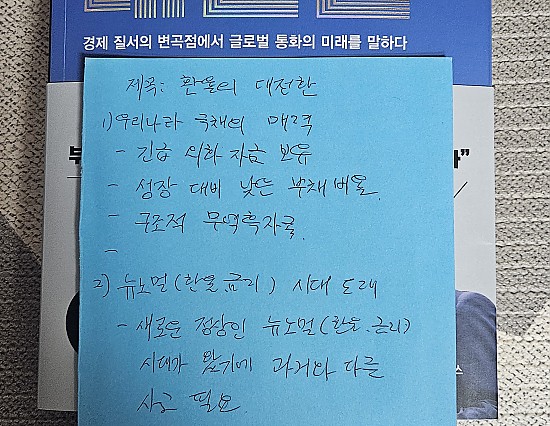 경제 질서의 변곡점에서 글로벌 통화의 미래를 말하다
제목: 환율의 대전환
1) 우리나라 국채의 매력
- 긴급 외화 자금 보유
- 성장 대비 낮은 부채 비율
- 구조적 무역흑자국
-
2) 뉴노멀(환율 금리) 시대 도래
- 새로운 정상인 뉴노멀(환율.금리)
시대가 왔기에 과거와 다른
사고 필요.